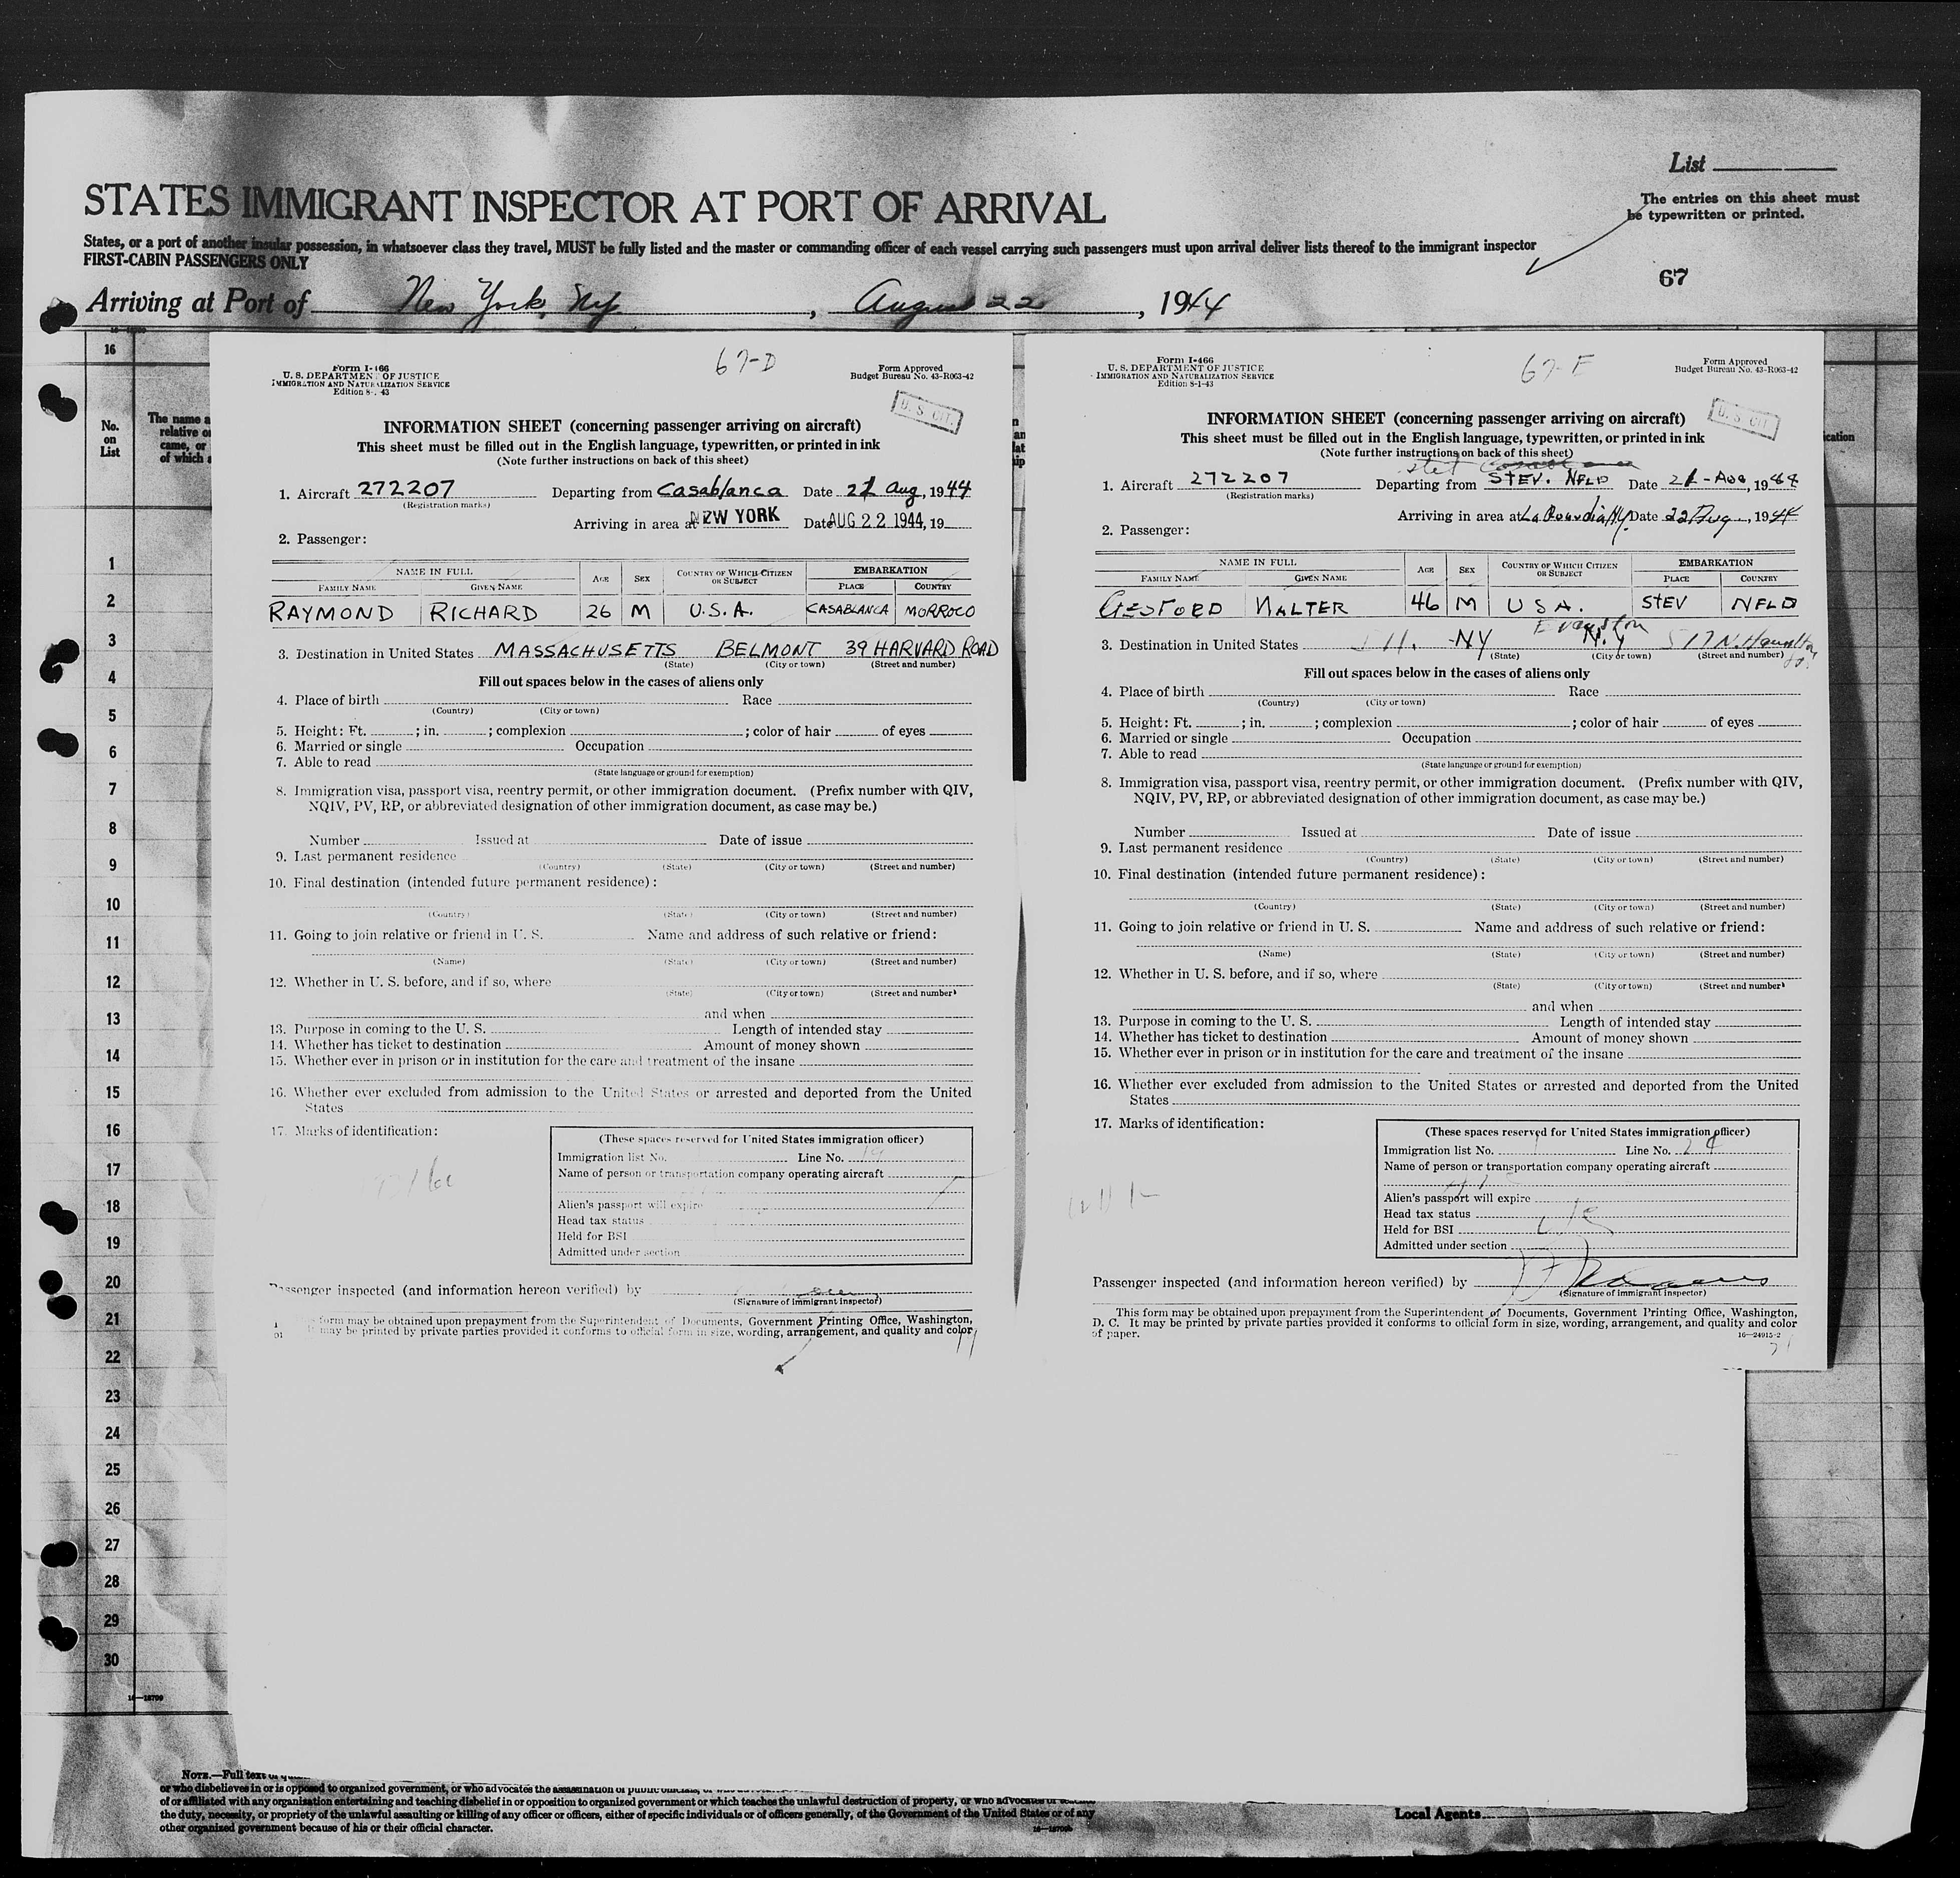 List
STATES IMMIGRANT INSPECTOR AT PORT OF ARRIVAL
The entries on this sheet must
be typewritten or printed.
States, or a port of another insular possession, in whatsoever class they travel, MUST be fully listed and the master or commanding officer of each vessel carrying such passengers must upon arrival deliver lists thereof to the immigrant inspector
FIRST-CABIN PASSENGERS ONLY
67
Arriving at Port of New York, Ny, August 22, 1944
16
No.
on
List
The name a
relative o
came, or
of which a
1
2
3
4
5
6
7
8
9
10
11
12
13
14
15
16
17
18
19
20
21
22
23
24
25
26
27
28
29
30
67-D
Form I-466
U. S. DEPARTMENT OF JUSTICE
IMMIGRATION AND NATURALIZATION SERVICE
Edition 8-1-43
Form Approved
Budget Bureau No. 43-R063-42
U. S. CIT.
INFORMATION SHEET (concerning passenger arriving on aircraft)
This sheet must be filled out in the English language, typewritten, or printed in ink
(Note further instructions on back of this sheet)
1. Aircraft 272207 Departing from Casablanca Date 21 Aug, 1944
(Registration marks)
Arriving in area at NEW YORK Date AUG 22 1944, 19
2. Passenger:
NAME IN FULL AGE SEX COUNTRY OF WHICH CITIZEN OR SUBJECT EMBARKATION
FAMILY NAME GIVEN NAME PLACE COUNTRY
RAYMOND RICHARD 26 M U.S.A. CASABLANCA MORROCO
3. Destination in United States MASSACHUSETTS BELMONT 39 HARVARD ROAD
(State) (City or town) (Street and number)
Fill out spaces below in the cases of aliens only
4. Place of birth Race
(Country) (City or town)
5. Height: Ft. ; in. ; complexion ; color of hair of eyes
6. Married or single Occupation
7. Able to read
(State language or ground for exemption)
8. Immigration visa, passport visa, reentry permit, or other immigration document. (Prefix number with QIV,
NQIV, PV, RP, or abbreviated designation of other immigration document, as case may be.)
Number Issued at Date of issue
9. Last permanent residence
(Country) (State) (City or town) (Street and number)
10. Final destination (intended future permanent residence):
(Country) (State) (City or town) (Street and number)
11. Going to join relative or friend in U. S. Name and address of such relative or friend:
(Name) (State) (City or town) (Street and number)
12. Whether in U. S. before, and if so, where
(State) (City or town) (Street and number)
and when
13. Purpose in coming to the U. S. Length of intended stay
14. Whether has ticket to destination Amount of money shown
15. Whether ever in prison or in institution for the care and treatment of the insane
16. Whether ever excluded from admission to the United States or arrested and deported from the United
States
17. Marks of identification:
(These spaces reserved for United States immigration officer)
Immigration list No. Line No.
Name of person or transportation company operating aircraft
Alien's passport will expire
Head tax status
Held for BSI
Admitted under section
Passenger inspected (and information hereon verified) by
(Signature of immigrant inspector)
form may be obtained upon prepayment from the Superintendent of Documents, Government Printing Office, Washington,
It may be printed by private parties provided it conforms to official form in size, wording, arrangement, and quality and color
67-E
Form I-466
U. S. DEPARTMENT OF JUSTICE
IMMIGRATION AND NATURALIZATION SERVICE
Edition 8-1-43
Form Approved
Budget Bureau No. 43-R063-42
U. S. CIT.
INFORMATION SHEET (concerning passenger arriving on aircraft)
This sheet must be filled out in the English language, typewritten, or printed in ink
(Note further instructions on back of this sheet)
stet
1. Aircraft 272207 Departing from STEV. NFLD Date 21-Aug, 1944
(Registration marks)
Arriving in area at La Guardia Ny. Date 22 Aug, 1944
2. Passenger:
NAME IN FULL AGE SEX COUNTRY OF WHICH CITIZEN OR SUBJECT EMBARKATION
FAMILY NAME GIVEN NAME PLACE COUNTRY
WALTER 46 M USA. STEV NFLD
Evanston
3. Destination in United States Ill. NY N.Y 517 N.
(State) (City or town) (Street and number)
Fill out spaces below in the cases of aliens only
4. Place of birth Race
(Country) (City or town)
5. Height: Ft. ; in. ; complexion ; color of hair of eyes
6. Married or single Occupation
7. Able to read
(State language or ground for exemption)
8. Immigration visa, passport visa, reentry permit, or other immigration document. (Prefix number with QIV,
NQIV, PV, RP, or abbreviated designation of other immigration document, as case may be.)
Number Issued at Date of issue
9. Last permanent residence
(Country) (State) (City or town) (Street and number)
10. Final destination (intended future permanent residence):
(Country) (State) (City or town) (Street and number)
11. Going to join relative or friend in U. S. Name and address of such relative or friend:
(Name) (State) (City or town) (Street and number)
12. Whether in U. S. before, and if so, where
(State) (City or town) (Street and number)
and when
13. Purpose in coming to the U. S. Length of intended stay
14. Whether has ticket to destination Amount of money shown
15. Whether ever in prison or in institution for the care and treatment of the insane
16. Whether ever excluded from admission to the United States or arrested and deported from the United
States
17. Marks of identification:
(These spaces reserved for United States immigration officer)
Immigration list No. Line No. 24
Name of person or transportation company operating aircraft
Alien's passport will expire
Head tax status
Held for BSI
Admitted under section
Passenger inspected (and information hereon verified) by
(Signature of immigrant inspector)
This form may be obtained upon prepayment from the Superintendent of Documents, Government Printing Office, Washington,
D. C. It may be printed by private parties provided it conforms to official form in size, wording, arrangement, and quality and color
of paper.
16—24915-2
16—18709
NOTE.—Full text
or who disbelieves in or is opposed to organized government, or who advocates the assassination of public officials,
of or affiliated with any organization entertaining and teaching disbelief in or opposition to organized government or which teaches the unlawful destruction of property, or who advocates
the duty, necessity, or propriety of the unlawful assaulting or killing of any officer or officers, either of specific individuals or of officers generally, of the Government of the United States or of any
other organized government because of his or their official character.
Local Agents